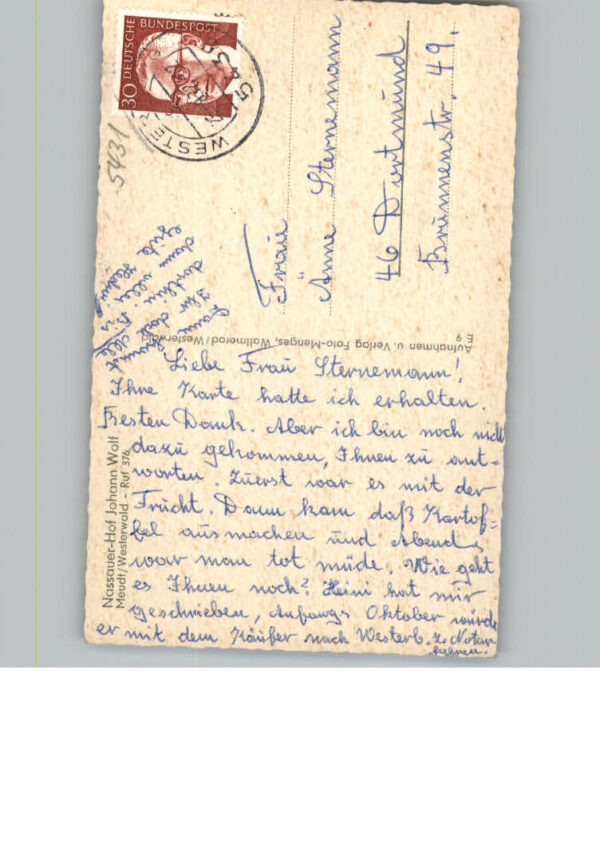 30 DEUTSCHE BUNDESPOST
543
WESTE
5431
Frau
Änne Sternemann
46 Dortmund
Brunnenstr. 49.
Aufnahmen u. Verlag Foto-Menges, Wallmerod/Westerwald
E 9
Nassauer-Hof Johann Wolf
Meudt/Westerwald - Ruf 376
Liebe Frau Sternemann!
Ihre Karte hatte ich erhalten.
Besten Dank. Aber ich bin noch nicht
dazu gekommen, Ihnen zu ant-
worten. Zuerst war es mit der
Frucht. Dann kam daß Kartof-
fel ausmachen und Abends
war man tot müde. Wie geht
es Ihnen noch? Heini hat mir
geschrieben, Anfangs Oktober würde
er mit dem Käufer nach Westerb. z. Notar
Dann kommt
Ihr doch
dorthin
dann alles
Gute